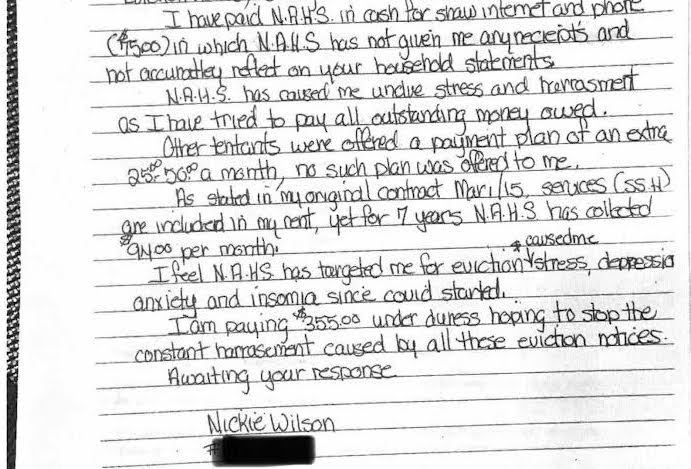 I have paid N.A.H.S. in cash for shaw internet and phone
($7500) in which N.A.H.S has not given me any reciepts and
not accuratley reflect on your household statements
N.A.H.S. has caused me undue stress and harrasment
as I have tried to pay all outstanding money owed.
Other tentants were offered a payment plan of an extra
25.00-50.00 a month, no such plan was offered to me.
As stated in my original contract Mar 1/15, services (SSH)
are included in my rent, yet for 7 years N.A.H.S has collected
$94.00 per month.
* caused me
I feel N.A.HS has targeted me for eviction * stress, depressio
anxiety and insomia since covid started.
I am paying $355.00 under duress hoping to stop the
constant harrasement caused by all these eviction notices.
Awaiting your response
Nickie Wilson
#